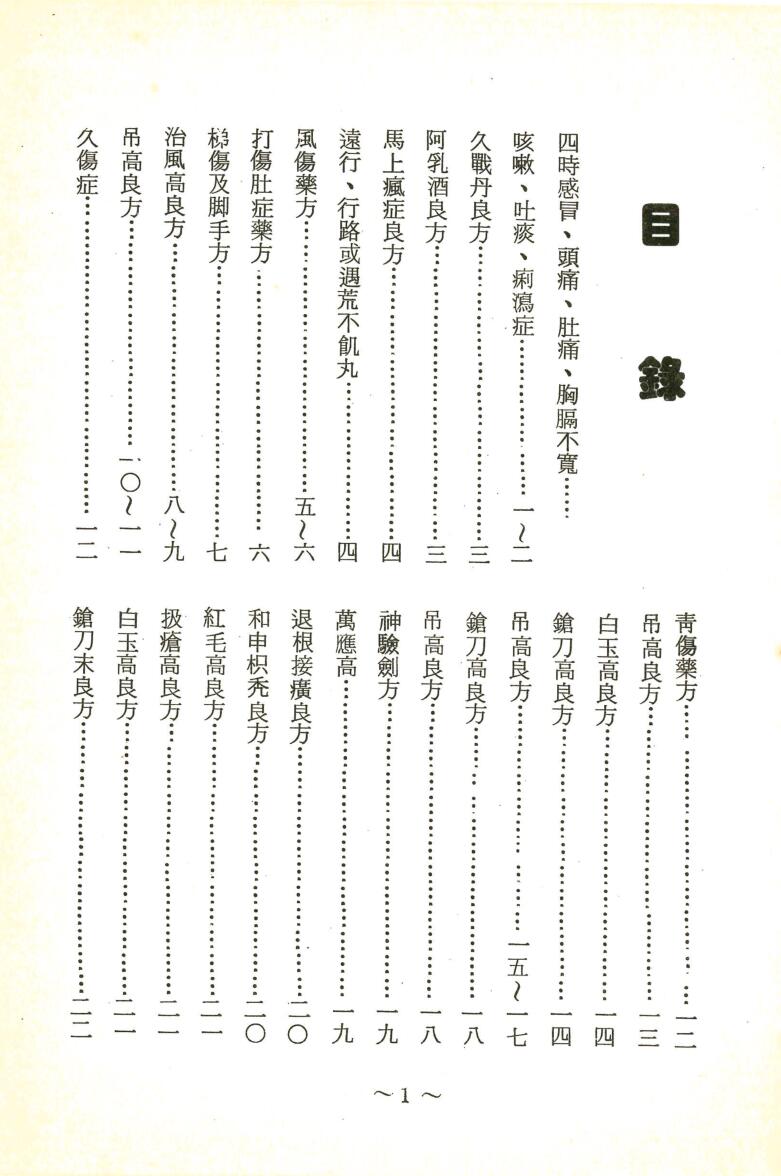 目錄
四時感冒、頭痛、肚痛、胸膈不寬……
咳嗽、吐痰、痢瀉症……一~二
久戰丹良方……三
阿乳酒良方……三
馬上瘋症良方……四
遠行、行路或遇荒不飢丸……四
風傷藥方……五~六
打傷肚症藥方……六
梯傷及脚手方……七
治風高良方……八~九
吊高良方……一〇~一一
久傷症……一二
靑傷藥方……一二
吊高良方……一三
白玉高良方……一四
鎗刀高良方……一四
吊高良方……一五~一七
鎗刀高良方……一八
吊高良方……一八
神驗劍方……一九
萬應高……一九
退根接癀良方……二〇
和申枳禿良方……二〇
紅毛高良方……二一
扱瘡高良方……二一
白玉高良方……二一
鎗刀末良方……二二
~1~